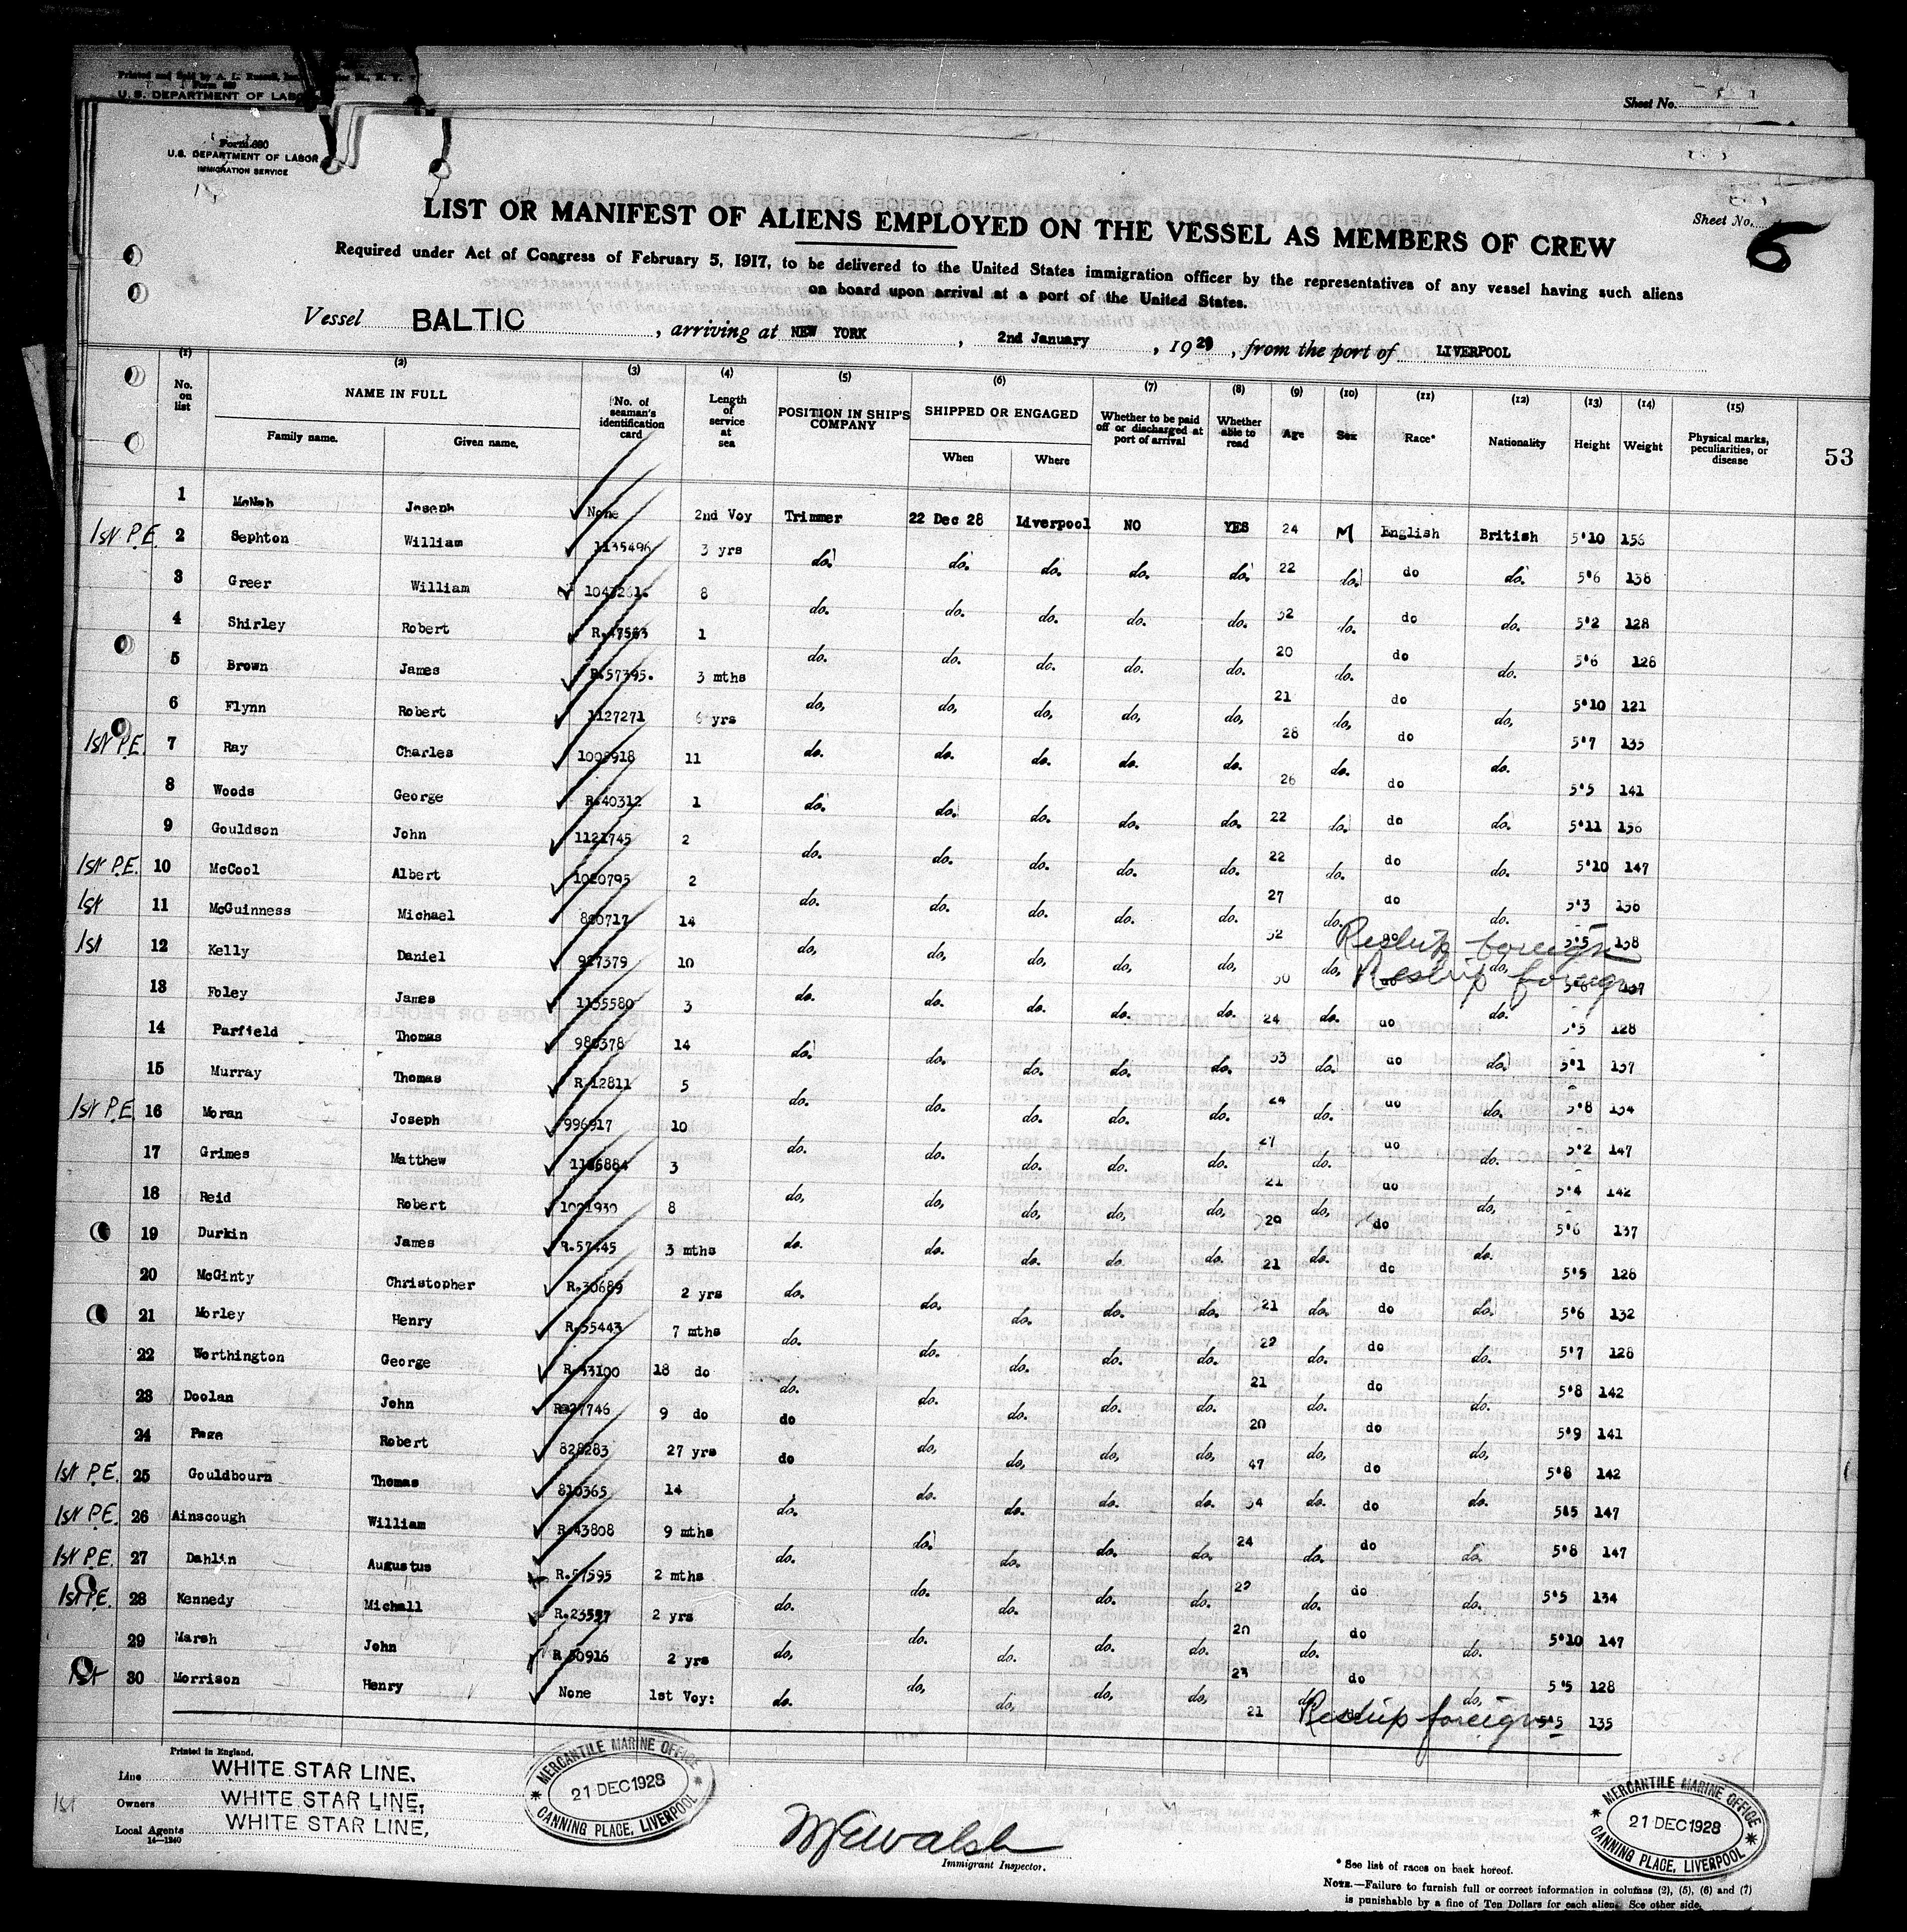 Printed and Sold by A. L. Russell, Inc.
U. S. DEPARTMENT OF LABOR
Sheet No.
Form 680
U.S. DEPARTMENT OF LABOR
IMMIGRATION SERVICE
Sheet No. 5
LIST OR MANIFEST OF ALIENS EMPLOYED ON THE VESSEL AS MEMBERS OF CREW
Required under Act of Congress of February 5, 1917, to be delivered to the United States immigration officer by the representatives of any vessel having such aliens
on board upon arrival at a port of the United States.
Vessel BALTIC, arriving at NEW YORK, 2nd January, 1929, from the port of LIVERPOOL
(1) (2) (3) (4) (5) (6) (7) (8) (9) (10) (11) (12) (13) (14) (15)
No. on list NAME IN FULL Family name. Given name. No. of seaman's identification card Length of service at sea POSITION IN SHIP'S COMPANY SHIPPED OR ENGAGED When Where Whether to be paid off or discharged at port of arrival Whether able to read Age Sex Race* Nationality Height Weight Physical marks, peculiarities, or disease 53
1 McNab Joseph None 2nd Voy Trimmer 22 Dec 28 Liverpool NO YES 24 M English British 5'10 156
1st P.E. 2 Sephton William 1135496 3 yrs do. do. do. do. do. 22 do. do do. 5'6 138
3 Greer William 8 do. do. do. do. do. 32 do. do do. 5'2 128
4 Shirley Robert R.47563 1 do. do. do. do. do. 20 do. do do. 5'6 128
5 Brown James R.57395. 3 mths do, do, do, do, do, 21 do, do do, 5'10 121
6 Flynn Robert 1127271 6 yrs do. do. do. do. do. 28 do. do do. 5'7 135
1st P.E. 7 Ray Charles 11 do. do. do. do. do. 26 do. do do. 5'5 141
8 Woods George R.40312 1 do. do. do. do. do. 22 do. do do. 5'11 156
9 Gouldson John 1121745 2 do. do. do. do. do. 22 do. do do. 5'10 147
1st P.E. 10 McCool Albert 1020795 2 do. do. do. do. do. 27 do. do do. 5'3 136
1st 11 McGuinness Michael 14 do, do, do, do, do, 32 do, do do, 5'5 138 Reship foreign
1st 12 Kelly Daniel 927379 10 do. do. do. do. do. 30 do. do do. 137 Reship foreign
13 Foley James 1135580 3 do. do. do. do. do. 24 do. do do. 5'5 128
14 Parfield Thomas 14 do. do. do. do. do. 33 do. do do. 5'1 137
15 Murray Thomas R 12811 5 do. do. do. do. do. 24 do. do do. 5'8 134
1st P.E. 16 Moran Joseph 996917 10 do, do, do, do, do, 27 do, do do, 5'2 147
17 Grimes Matthew 3 do. do. do. do. do. 21 do. do do. 5'4 142
18 Reid Robert 1021930 8 do. do. do. do. do. 29 do. do do. 5'6 137
19 Durkin James R.57445 3 mths do. do. do. do. do. 21 do. do do. 5'5 128
20 McGinty Christopher R.30689 2 yrs do. do. do. do. do. 21 do. do do. 5'6 132
21 Morley Henry R.55443 7 mths do. do. do. do. do. 22 do. do do. 5'7 128
22 Worthington George R.53100 18 do do. do. do. do. do. 21 do. do do. 5'8 142
23 Doolan John 9 do do do, do, do, do, 20 do, do do, 5'9 141
24 Page Robert 828283 27 yrs do do. do. do. do. 47 do. do do. 5'8 142
1st P.E. 25 Gouldbourn Thomas 810365 14 do. do. do. do. do. 34 do. do do. 5'5 147
1st P.E. 26 Ainscough William R.43808 9 mths do. do. do. do. do. 24 do. do do. 5'8 147
1st P.E. 27 Dahlin Augustus R.57595 2 mths do. do. do. do. do. 22 do. do do. 5'5 134
1st P.E. 28 Kennedy Michall R.23557 2 yrs do, do, do, do, do, 20 do, do do, 5'10 147
29 Marsh John R 50916 2 yrs do. do. do. do. do. 23 do. do do. 5'5 128
1st 30 Morrison Henry None 1st Voy: 21 5'5 135 Reship foreign
Printed in England.
Line WHITE STAR LINE,
Owners WHITE STAR LINE,
Local Agents WHITE STAR LINE,
14—1240
1st
MERCANTILE MARINE OFFICE
21 DEC 1928
CANNING PLACE, LIVERPOOL
Immigrant Inspector.
MERCANTILE MARINE OFFICE
21 DEC 1928
CANNING PLACE, LIVERPOOL
* See list of races on back hereof.
NOTE.—Failure to furnish full or correct information in columns (2), (5), (6) and (7)
is punishable by a fine of Ten Dollars for each alien. See other side.